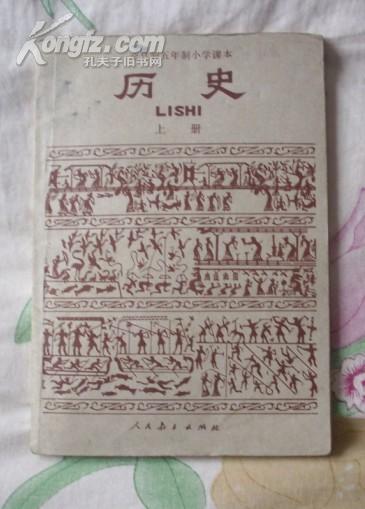 Kongfz.com
孔夫子旧书网
五年制小学课本
历史
LISHI
上册
人民教育出版社